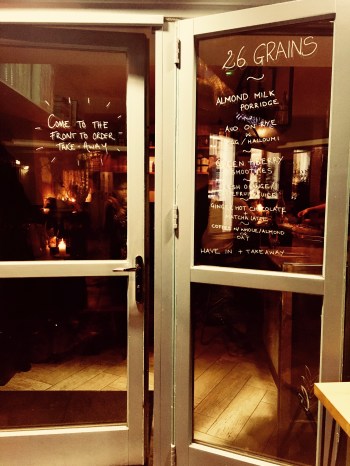 COME TO THE
FRONT TO ORDER
TAKE AWAY
26 GRAINS
ALMOND MILK
PORRIDGE
AVO ON RYE
W
EGG / HALLOUMI
GREEN / BERRY
SMOOTHIES
FRESH ORANGE /
JUICE
GINGER HOT CHOCOLATE
MATCHA LATTE
COFFEE W WHOLE/ALMOND
OR
DAY
HAVE IN + TAKEAWAY